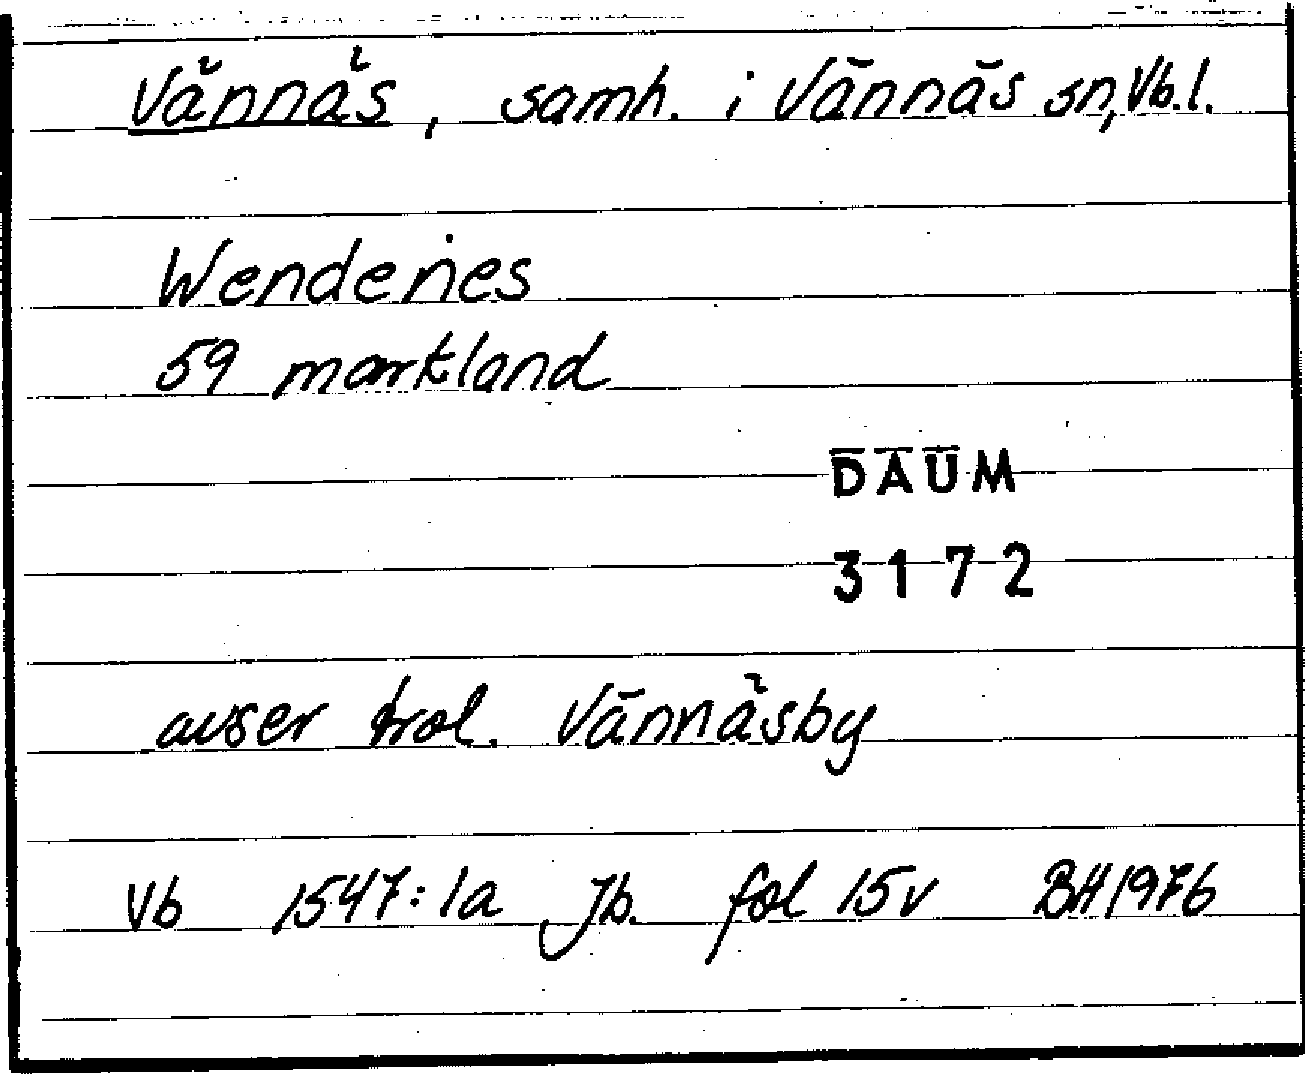 Vännäs, samh. i Vännäs sn, Vb.l.
Wendenes
59 markland
DAUM
3172
avser trol. Vännäsby
Vb 1547:1a Jb. fol 15v BH 1976